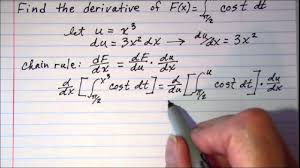 Find the derivative of F(x)=∫_{π/2}^{x³} cost dt
let u = x³
du = 3x² dx → du/dx = 3x²
chain rule: dF/dx = dF/du · du/dx
d/dx [∫_{π/2}^{x³} cost dt] = d/du [∫_{π/2}^{u} cost dt] · du/dx